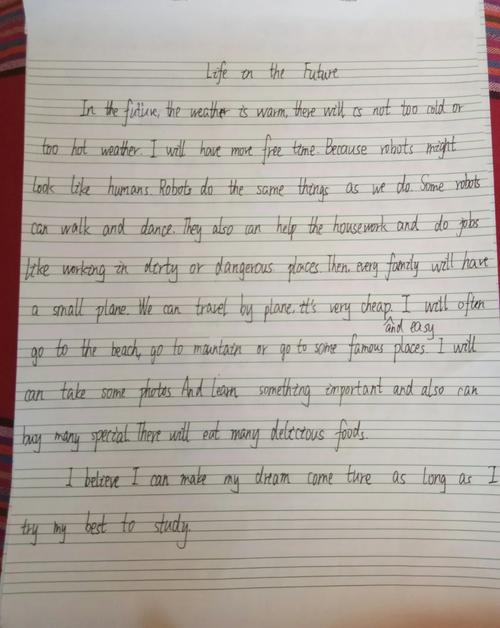 Life in the Future
In the future, the weather is warm, there will is not too cold or
too hot weather. I will have more free time. Because robots might
look like humans. Robots do the same things as we do. Some robots
can walk and dance. They also can help the housework and do jobs
like working in dirty or dangerous places. Then, every family will have
a small plane. We can travel by plane, it's very cheap. I will often
and easy
go to the beach, go to mantain or go to some famous places. I will
can take some photos. And learn something important and also can
buy many special. There will eat many delicious foods.
I believe I can make my dream come ture as long as I
try my best to study.